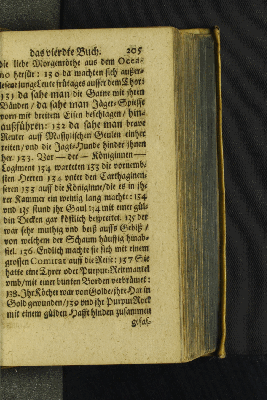 das vierdte Buch. 205
die liebe Morgenröthe aus dem Ocea-
no herfür: 130 da machten sich außer-
lesene junge Leute frü tages ausser dem Thor:
131 da sahe man die Garne mit ihren
Bänden / da sahe man Jäger-Spiesse
vorn mit breitem Eisen beschlagen / hin-
ausführen: 132 da sahe man brave
Reuter auff Massylischen Geulen einher
reiten / und die Jagt-Hunde hinder ihnen
her. 133. Vor — der — Königinnen —
Logiment 134 warteten 133 die vornemb-
sten Herren 134 unter den Carthaginen-
sern 133 auff die Königinne / die es in ih-
rer Kammer ein wenig lang machte: 134
und 135 stund ihr Gaul 134 mit einer gül-
din Decken gar köstlich bespreitet. 135 der
war sehr muthig und beiß auffs Gebiß /
von welchem der Schaum häuffig hinab-
fiel. 136. Endlich machte sie sich mit einem
grossen Comitat auff die Reise: 137 Sie
hatte eine Tyrer oder Purpur-Reitmantel
umb / mit einer bunten Borden verbrämt:
138. Ihr Köcher war von Golde / ihre Har in
Gold gewunden / 139 und ihr Purpur Rock
mit einem gülden Hafft hinden zusammen
gefaß-